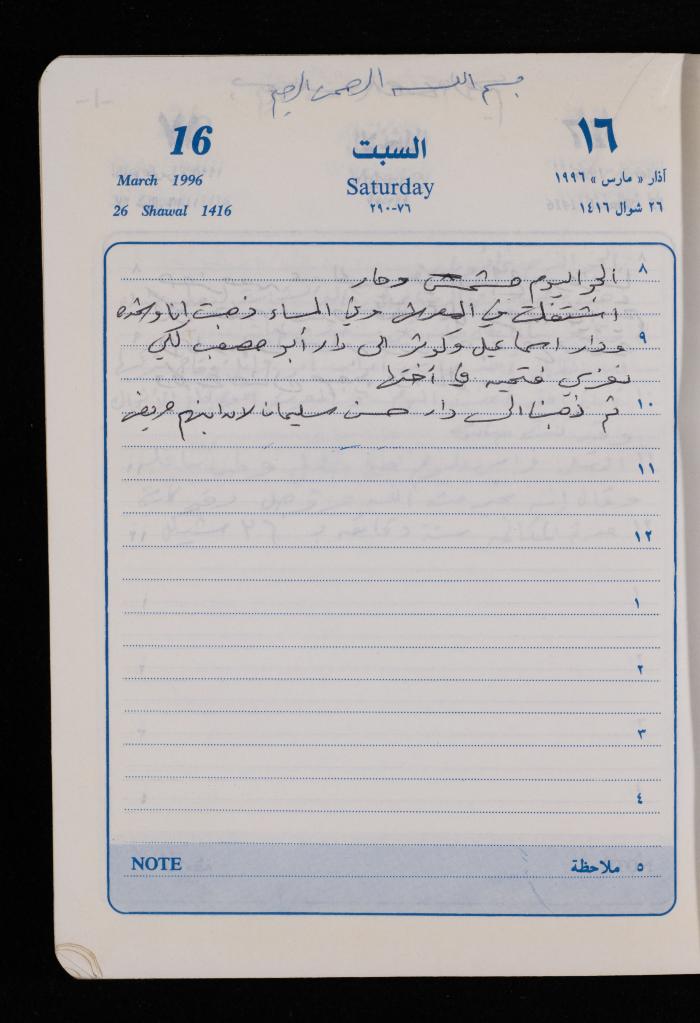 بسم الله الرحمن الرحيم
16 السبت ١٦
March 1996 Saturday آذار « مارس » ١٩٩٦
26 Shawal 1416 ٧٦-٢٩٠ ٢٦ شوال ١٤١٦
٨ الجو اليوم مشمس وحار
اشتغلت في المعرض وفي المساء ذهبت انا
٩ ودار اسماعيل وكوثر الى دار أبو مصعب لكي
نعزي فتحيه في أختها
١٠ ثم ذهبنا الى دار حسن سليمان لان ابنهم مريض
١١
١٢
١
٢
٣
٤
NOTE ٥ ملاحظة